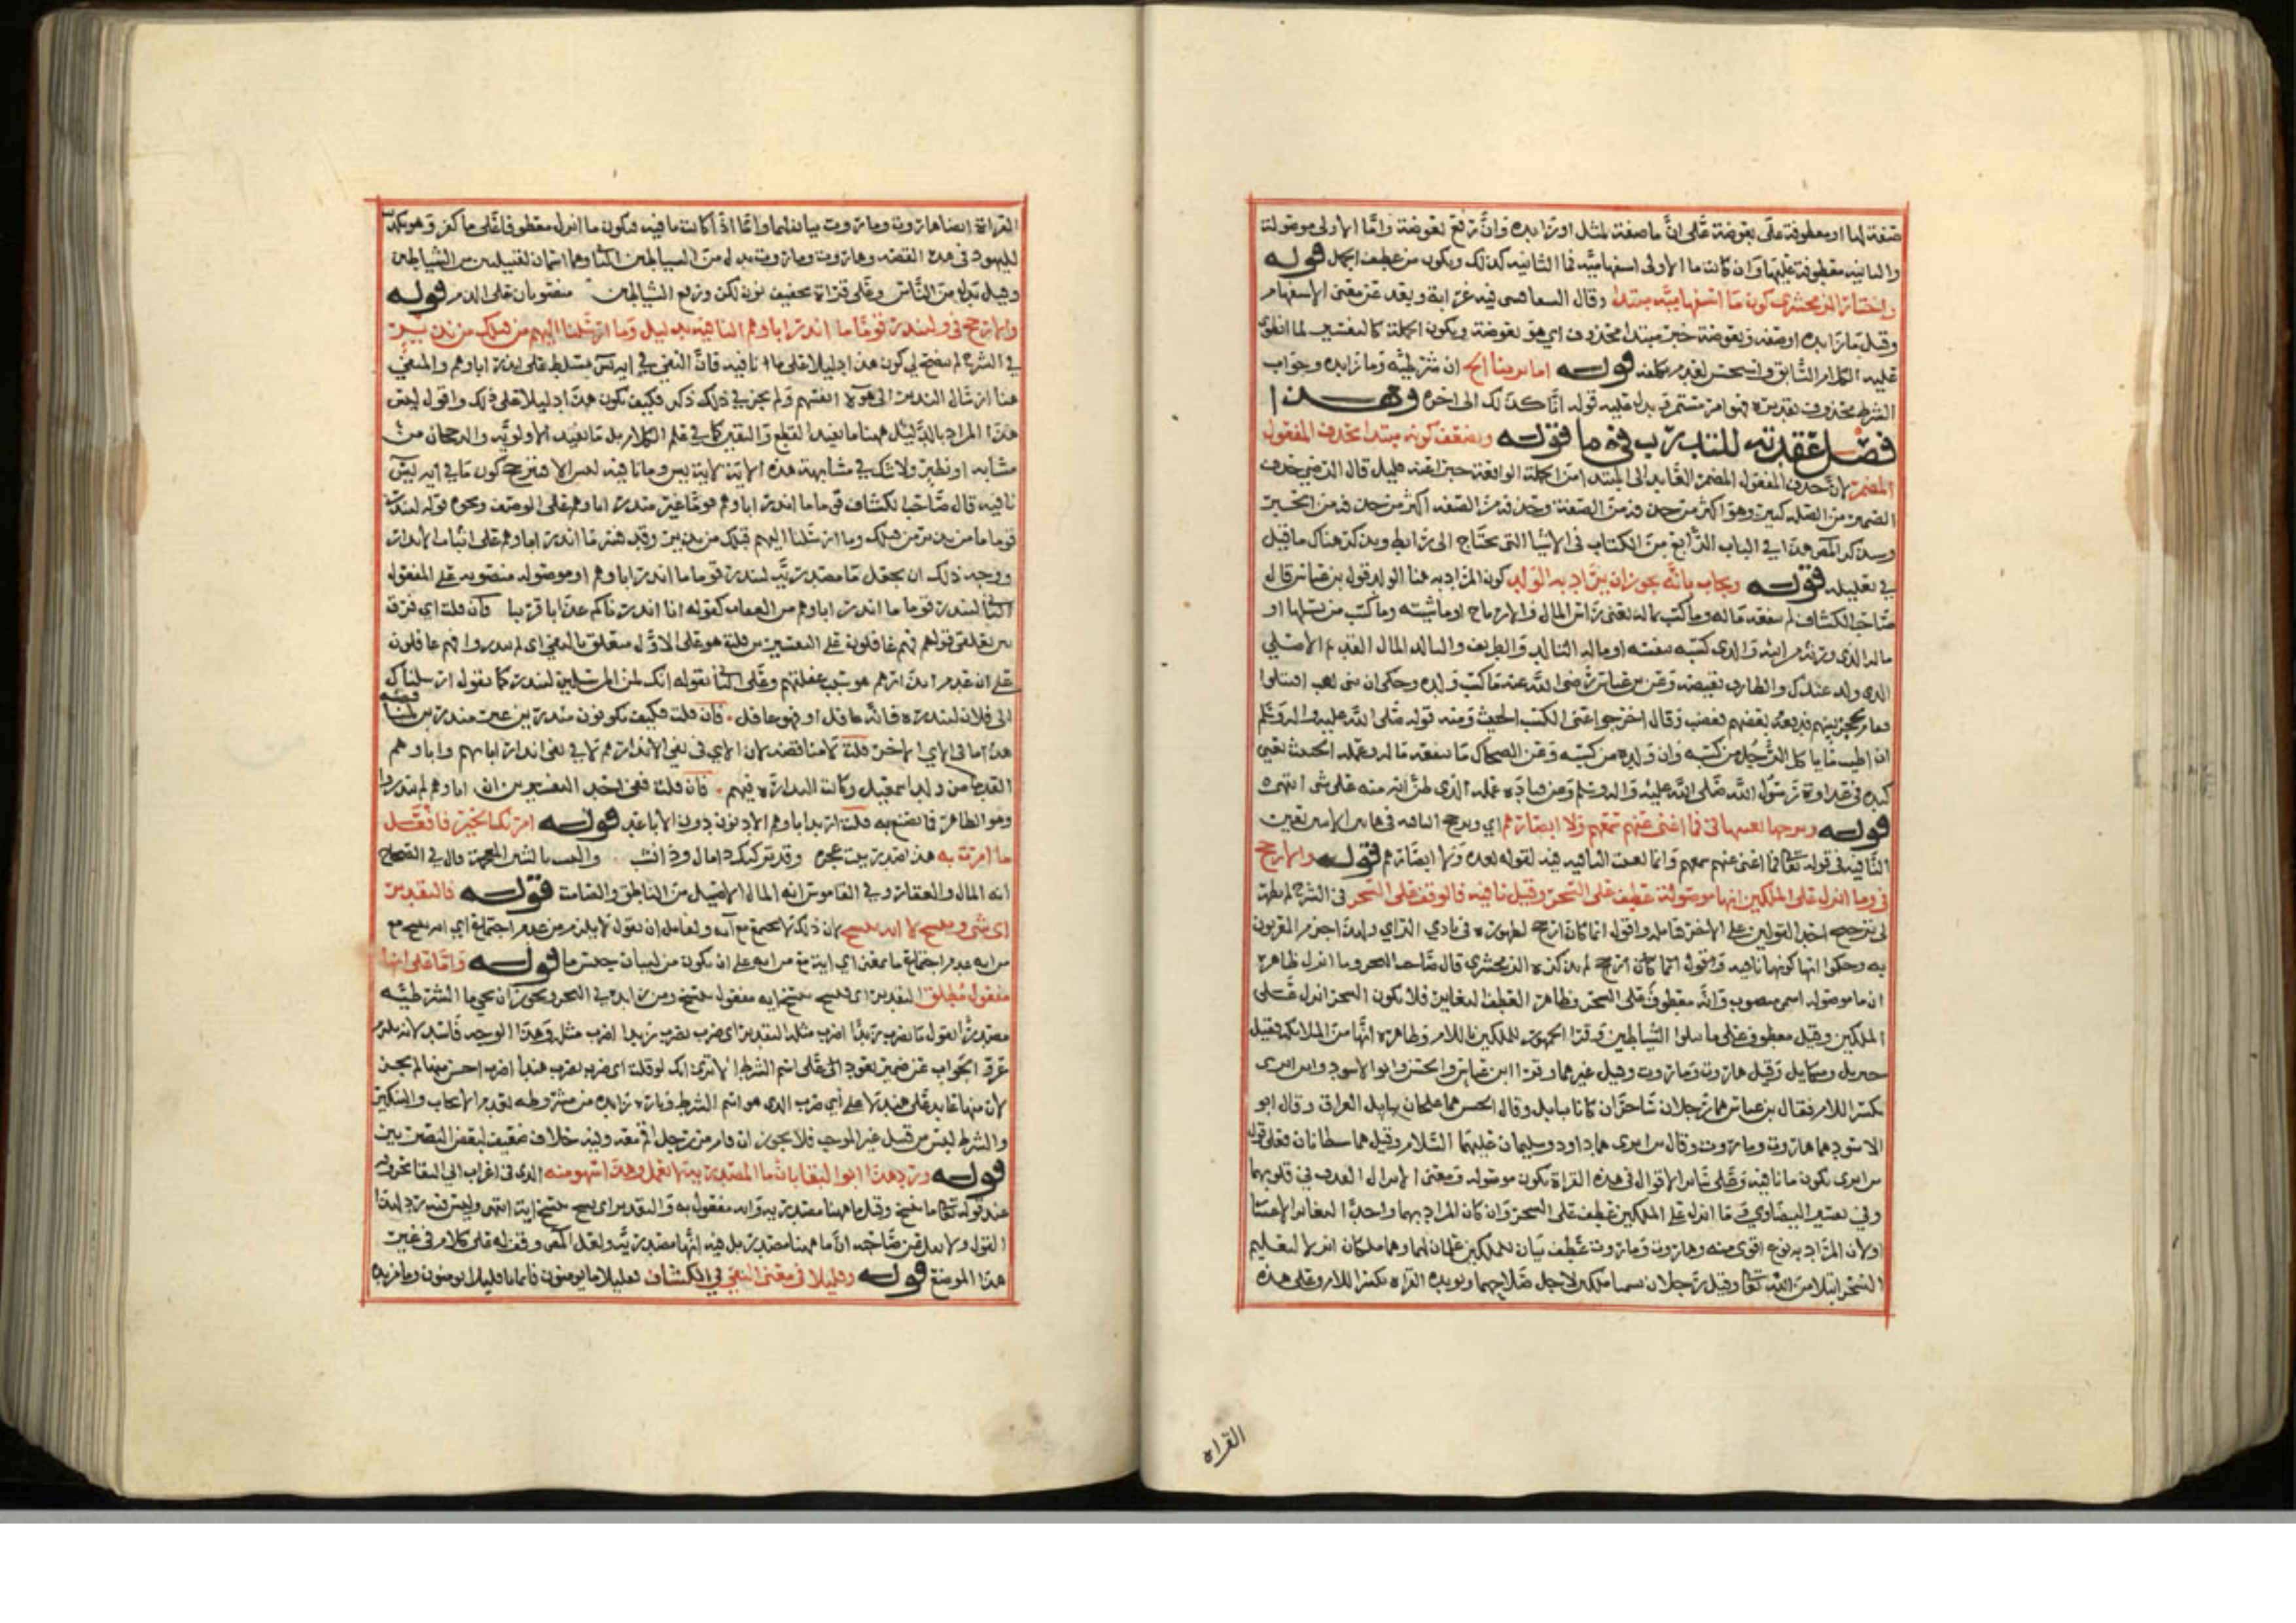 صفة لها او معطوفة على بعوضة على ان ما صفة لمثل او زايده وان رفع بعوضة واما الاولى موصولة
والثانيه معطوفة عليها وان كانت ما الاولى استفهاميه فما الثانيه كذلك ويكون من عطف الجمل قوله
واختار الزمخشري كون ما استفهاميه مبتدا وقال فيه غرابة وبعد عن معنى الاستفهام
وقيل ما زايده او صفه وبعوضة خبر مبتدا محذوف اي هو بعوضة وتكون الجملة كالتفسير لما انطوى
عليه الكلام السابق قوله اما ان شرطيه وما زايده وجواب
الشرط محذوف تقديره قوله انا كذلك الى اخره وهذا
فصل عقدته للتدريب في ما قوله ويضعف كونه مبتدا بحذف المفعول
المضمر لان حذف المفعول المضمر العايد الى المبتدا من الجملة الواقعة خبرا عنه قليل قال الرضي حذف
الضمير من الصله كثير وهو اكثر من حذفه من الصفة وحذفه من الصفة اكثر من حذفه من الخبر
وسيذكر المص هذا في الباب الرابع من الكتاب في الاشيا التي تحتاج الى رابط ويذكر هناك ما قيل
في تعليله قوله ويجاب بانه يجوز ان يراد به الولد كون المراد به هنا الولد قول بن عباس قال
صاحب الكشاف لم ينفعه ماله وما كسب بماله يعني راس المال والارباح او ماشيته وما كسب من نسلها او
ماله الذي ورثه من ابيه والذي كسبه بنفسه او ماله التالد والطريف والتالد المال القديم الاصلي
الذي ولد عندك والطارف نقيضه وعن بن عباس رضي الله عنه ما كسب ولده وحكي ان بني لهب اقتتلوا
فقام يحجز بينهم فدفعه بعضهم فغضب وقال اخرجوا عني الكسب الخبيث ومنه قوله صلى الله عليه واله وسلم
ان اطيب ما ياكل الرجل من كسبه وان ولده من كسبه وعن الضحاك ما ينفعه ماله وعمله الخبيث يعني
كيده في عداوة رسول الله صلى الله عليه واله وسلم وعن قتادة عمله الذي ظن انه منه على شي انتهى
قوله في فما اغنى عنهم سمعهم ولا ابصارهم اي ويرجح النافيه في
النافيه في قوله تعالى فما اغنى عنهم سمعهم وانما تعينت النافيه فيه لقوله بعده ولا ابصارهم قوله والارجح
في وما انزل على الملكين انها موصولة عطف على السحر وقيل نافيه فالوقف على السحر في الشرح لم يظهر
لي ترجيح احد القولين على الاخر فتامله واقول انما كان ارجح لظهوره في بادي الراي ولهذا اجزم المعربون
به وحكوا انها كونها نافيه واقول انما كان ارجح لم يذكره الزمخشري قال صاحب البحر وما انزل ظاهره
ان ما موصوله اسم منصوب وانه معطوف على السحر وظاهر العطف التغاير فلا يكون السحر انزل على
الملكين وقيل معطوف على ما تتلوا الشياطين وقرا الجمهور الملكين باللام وظاهره انهما من الملائكه فقيل
جبريل وميكايل وقيل هاروت وماروت وقيل غيرهما وقرا ابن عباس والحسن وابو الاسود وابن ابزى
بكسر اللام فقال بن عباس هما رجلان ساحران كانا ببابل وقال الحسن هما علجان ببابل العراق وقال ابو
الاسود هما هاروت وماروت وقال بن ابزى هما داود وسليمان عليهما السلام وقيل هما شيطانان فعلى قول
بن ابزى تكون ما نافيه وعلى سائر الاقوال في هذه القراة تكون موصوله ومعنى الانزال القذف في قلوبهما
وفي تفسير البيضاوي وما انزل على الملكين عطف على السحر وان كان المراد بهما واحدا التغاير الاعتبار
اولان المراد به نوع اقوى منه وهاروت وماروت عطف بيان للملكين علمان لهما وهما ملكان انزلا لتعليم
السحر ابتلا من الله تعالى وقيل رجلان سميا ملكين لاجل صلاحهما ويويده القراه بكسر اللام وعلى هذه
القراه
القراة ايضا هاروت وماروت بيان لهما واما اذا كانت ما نافيه فيكون ما انزل معطوفا على ما كفر وهو تكذيب
لليهود في هذه القصه وهاروت وماروت بدل من الشياطين وهما اسمان لقبيلتين من الشياطين
وقيل بدل من الناس وعلى قراة تخفيف نون لكن ورفع الشياطين منصوبان على الذم قوله
والارجح في ولتنذر قوما ما انذر اباوهم النافيه بدليل وما ارسلنا اليهم من قبلك من نذير
في الشرح لم يتضح لي كون هذا دليلا على ما نافيه فان النفي في اية يس مسلط على انذار اباوهم والمنفي
هنا ارسال النذير الى هولا انفسهم ولم يجر في ذلك ذكر فكيف يكون هذا دليلا على ذلك واقول ليس
هذا المراد بالدليل ههنا ما يفيد القطع واليقين كما في علم الكلام بل ما يفيد الاولويه والرجحان من
مشابه او نظير ولا شك في مشابهة هذه الاية لاية يس وما نافيه ليس الا فترجح كون ما في اية يس
نافيه قال صاحب الكشاف قوما ما انذر اباوهم قوما غير منذر اباوهم على الوصف ونحوه قوله لتنذر
قوما ما من نذير من قبلك وما ارسلنا اليهم قبلك من نذير وقد فسر ما انذر اباوهم على اثبات الانذار
ووجه ذلك ان يجعل ما مصدريه لتنذر قوما ما انذر اباوهم او موصوله منصوبه على المفعول
الثاني لتنذر قوما ما انذر اباوهم من العذاب كقوله انا انذرناكم عذابا قريبا فان قلت اي فرق
بين تعلقي قولهم فهم غافلون على التفسيرين قلت هو على الاول متعلق بالنفي اي لم ينذروا فهم غافلون
على ان عدم انذارهم هو سبب غفلتهم وعلى الثاني بقوله انك لمن المرسلين لتنذر كما تقول ارسلناك
الى فلان لتنذره فانه غافل او فهو غافل فان قلت فكيف يكونون منذرين غير منذرين
هذا ما في الاي الاخر قلت لا مناقضه لان الاي في نفي الانذار هم لا في نفي انذار ابايهم واباوهم
القدما من ولد اسمعيل وكانت النذارة فيهم فان قلت ففي احد التفسيرين ان اباوهم لم ينذروا
وهو الظاهر فما تصنع به قلت اريد اباوهم الادنون دون الاباعد قوله امرتك الخير فافعل
ما امرت به هذا صدر بيت عجزه وقد تركتك ذا مال وذا نشب والنشب بالشين المعجمة قال في الصحاح
انه المال والعقار وفي القاموس انه المال الاصيل من الناطق والصامت قوله فالتقدير
اي شي ننسخ لا اية ننسخ لان ذلك لا يجتمع مع اية ولقايل ان يقول لا يلزم من عدم اجتماع اي اية ننسخ مع
من اية عدم اجتماع ما بمعنى اي اية مع من اية على ان يكون من لبيان جنس ما قوله واما على انها
مفعول مطلق التقدير اي نسخ ننسخ اية مفعول ننسخ ومن زايده في البحر ويجوز ان تجي ما الشرطيه
مصدرا تقول ما تضرب زيدا اضرب مثله التقدير اي ضرب تضرب زيدا اضرب مثله وهذا الوجه فاسد لانه يلزم
عرو الجواب عن ضمير يعود الى على اسم الشرط الا ترى انك لو قلت اي ضرب تضرب هندا اضرب احسن منها لم يجز
لان منها عايد على هند لا على اي ضرب الذي هو اسم الشرط وبان زيادة من مشروطه بعدم الايجاب والتنكير
والشرط ليس من قبيل غير الموجب فلا يجوز ان قام من رجل اقم معه وفيه خلاف ضعيف لبعض البصريين
قوله ورد هذا ابو البقا بان ما المصدريه لا تعمل وهذا سهو منه الذي في اعراب ابي البقا
عند قوله تعالى ما ننسخ وقيل ما ههنا مصدريه واية مفعول به والتقدير اي نسخ ننسخ اية انتهى وليس فيه رد لهذا
القول ولا نقل عن صاحبه ان ما ههنا مصدريه بل فيه انها مصدريه ولعل المص وقف له على كلام في غير
هذا الموضع قوله وقليلا في معنى النفي في الكشاف فقليلا ما يومنون فايمانا قليلا يومنون وما مزيده